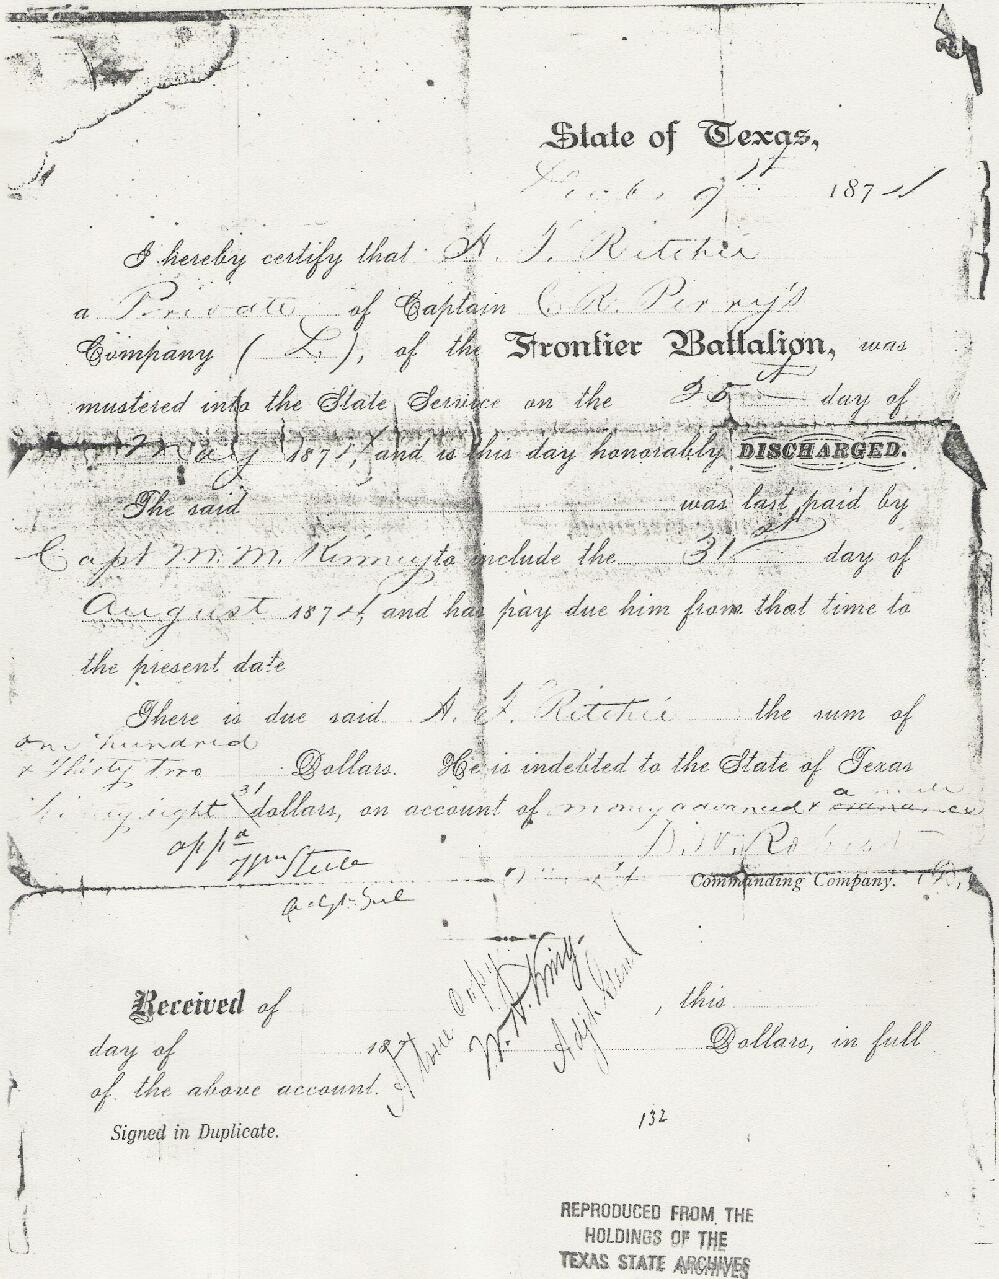 State of Texas,
187
I hereby certify that A. J. Ritchie
a Private of Captain C. R. Perry's
Company ( D ), of the Frontier Battalion, was
mustered into the State Service on the 25 day of
May 1874, and is this day honorably DISCHARGED.
The said was last paid by
Capt M. M. Kenney to include the 31st day of
August 1874, and has pay due him from that time to
the present date
There is due said A. J. Ritchie the sum of
one hundred
& thirty two Dollars. He is indebted to the State of Texas
eight dollars, on account of money advanced &
D. W. Roberts
app'd
Wm Steele
Commanding Company.
Adjt Genl
A true Copy
W. H. King
Adjt Genl
Received of , this
day of 187 Dollars, in full
of the above account.
132
Signed in Duplicate.
REPRODUCED FROM THE
HOLDINGS OF THE
TEXAS STATE ARCHIVES